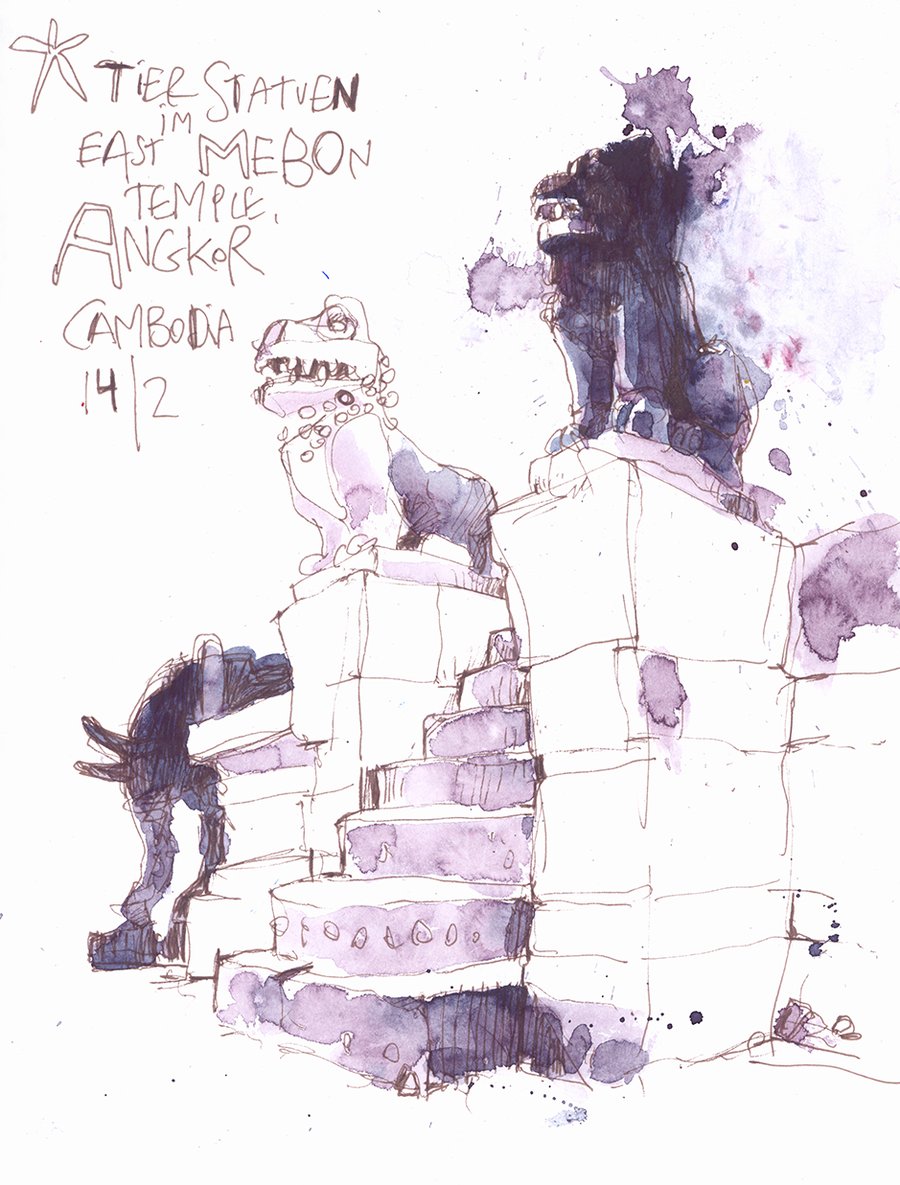 * TIER STATUEN
im
EAST MEBON
TEMPLE,
ANGKOR
CAMBODIA
14/2